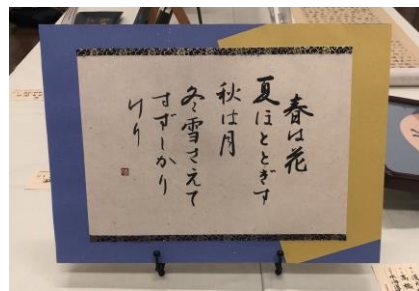 春は花
夏ほととぎす
秋は月
冬雪さえて
すずしかり
けり